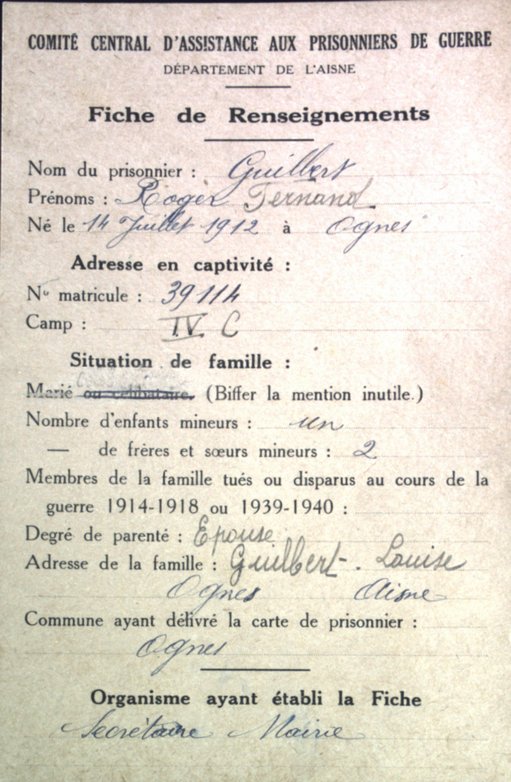 COMITÉ CENTRAL D'ASSISTANCE AUX PRISONNIERS DE GUERRE
DÉPARTEMENT DE L'AISNE
Fiche de Renseignements
Nom du prisonnier : Guilbert
Prénoms : Roger Fernand
Né le 14 Juillet 1912 à Ognes
Adresse en captivité :
No matricule : 39114
Camp : IV C
Situation de famille :
Marié ou célibataire. (Biffer la mention inutile.)
Nombre d'enfants mineurs : un
— de frères et sœurs mineurs : 2
Membres de la famille tués ou disparus au cours de la
guerre 1914-1918 ou 1939-1940 :
Degré de parenté : Epouse
Adresse de la famille : Guilbert - Louise
Ognes Aisne
Commune ayant délivré la carte de prisonnier :
Ognes
Organisme ayant établi la Fiche
Secrétaire Mairie